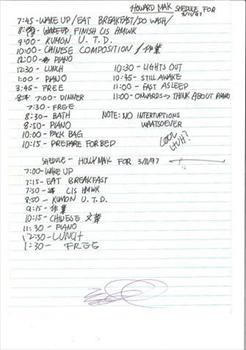 HOWARD MAK SHEDULE FOR
7:45-WAKE UP/EAT BREAKFAST/DO WASH/
FINISH CLS HMWK
9:00 - KUMON U.T.D.
10:00 - CHINESE COMPOSITION / 作業
12:00 PIANO
12:30 - LUNCH
1:00 - PIANO
3:45 - FREE
7:00 - DINNER
7:30 - FREE
8:30 - BATH
8:50 - PIANO
10:00 - PACK BAG
10:15 - PREPARE FOR BED
10:30 - LIGHTS OUT
10:45 - STILL AWAKE
11:00 - FAST ASLEEP
11:00 - ONWARDS → THINK ABOUT PIANO
NOTE: NO INTERUPTIONS
WHATSOEVER
COOL
HUH?
SHEDULE - HOLLY MAK FOR 3/10/97
7:00 - WAKE UP
7:15 - EAT BREAKFAST
7:30 - CLS HMWK
8:50 - KUMON U.T.D.
9:15 - 作業
10:15 - CHINESE 文
11:30 - PIANO
12:30 - LUNCH
1:30 - FREE